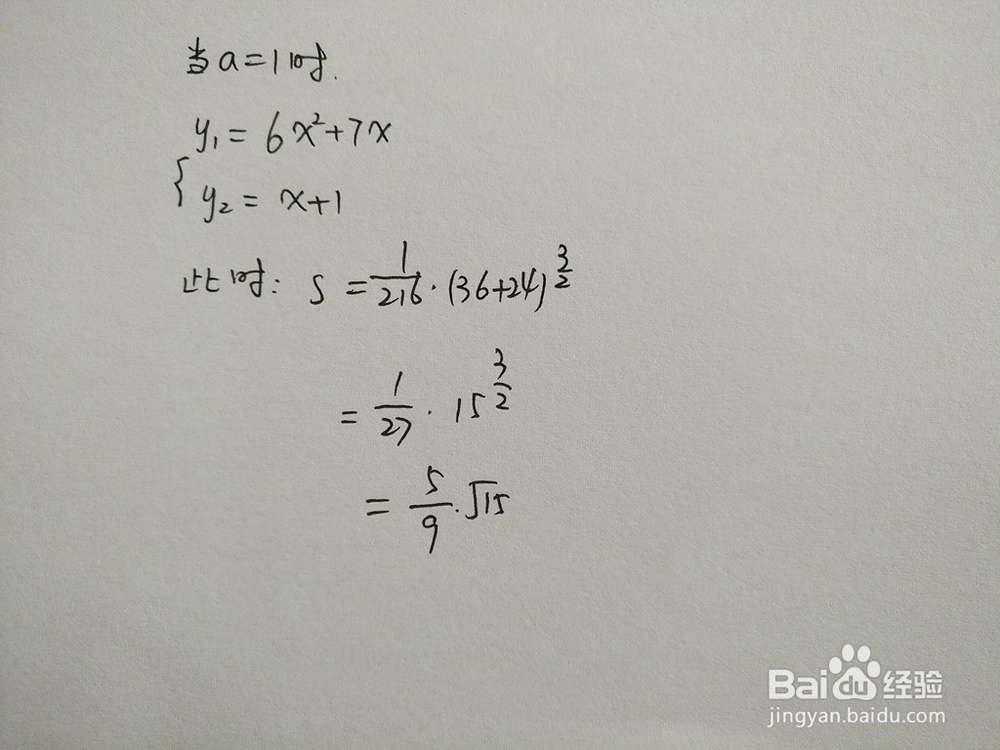 当a=1时.
y₁ = 6x²+7x
{ y₂ = x+1
此时: S = 1/216 · (36+24)^(3/2)
= 1/27 · 15^(3/2)
= 5/9 · √15
Baidu经验
jingyan.baidu.com